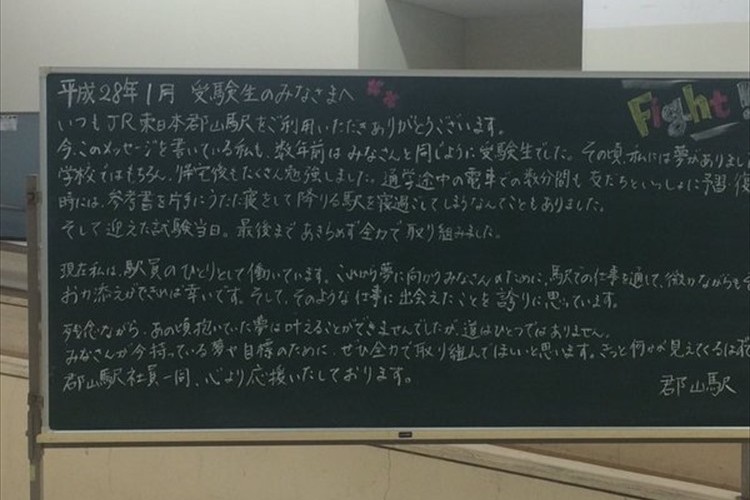 平成28年1月 受験生のみなさまへ
Fight
いつもJR東日本郡山駅をご利用いただきありがとうございます。
今、このメッセージを書いている私も、数年前はみなさんと同じように受験生でした。その頃、私には夢がありまし
学校ではもちろん、帰宅後もたくさん勉強しました。通学途中の電車での数分間も友だちといっしょに予習・復
時には、参考書を片手にうたた寝をして降りる駅を寝過ごしてしまうなんてこともありました。
そして迎えた試験当日。最後まであきらめず全力で取り組みました。
現在私は、駅員のひとりとして働いています。これから夢に向かうみなさんのために、駅での仕事を通して、微力ながらも
お力添えができれば幸いです。そして、そのような仕事に出会えたことを誇りに思っています。
残念ながら、あの頃抱いていた夢は叶えることができませんでしたが、道はひとつではありません。
みなさんが今持っている夢や目標のために、ぜひ全力で取り組んでほしいと思います。きっと何かが見えてくるはず
郡山駅社員一同、心より応援いたしております。
郡山駅